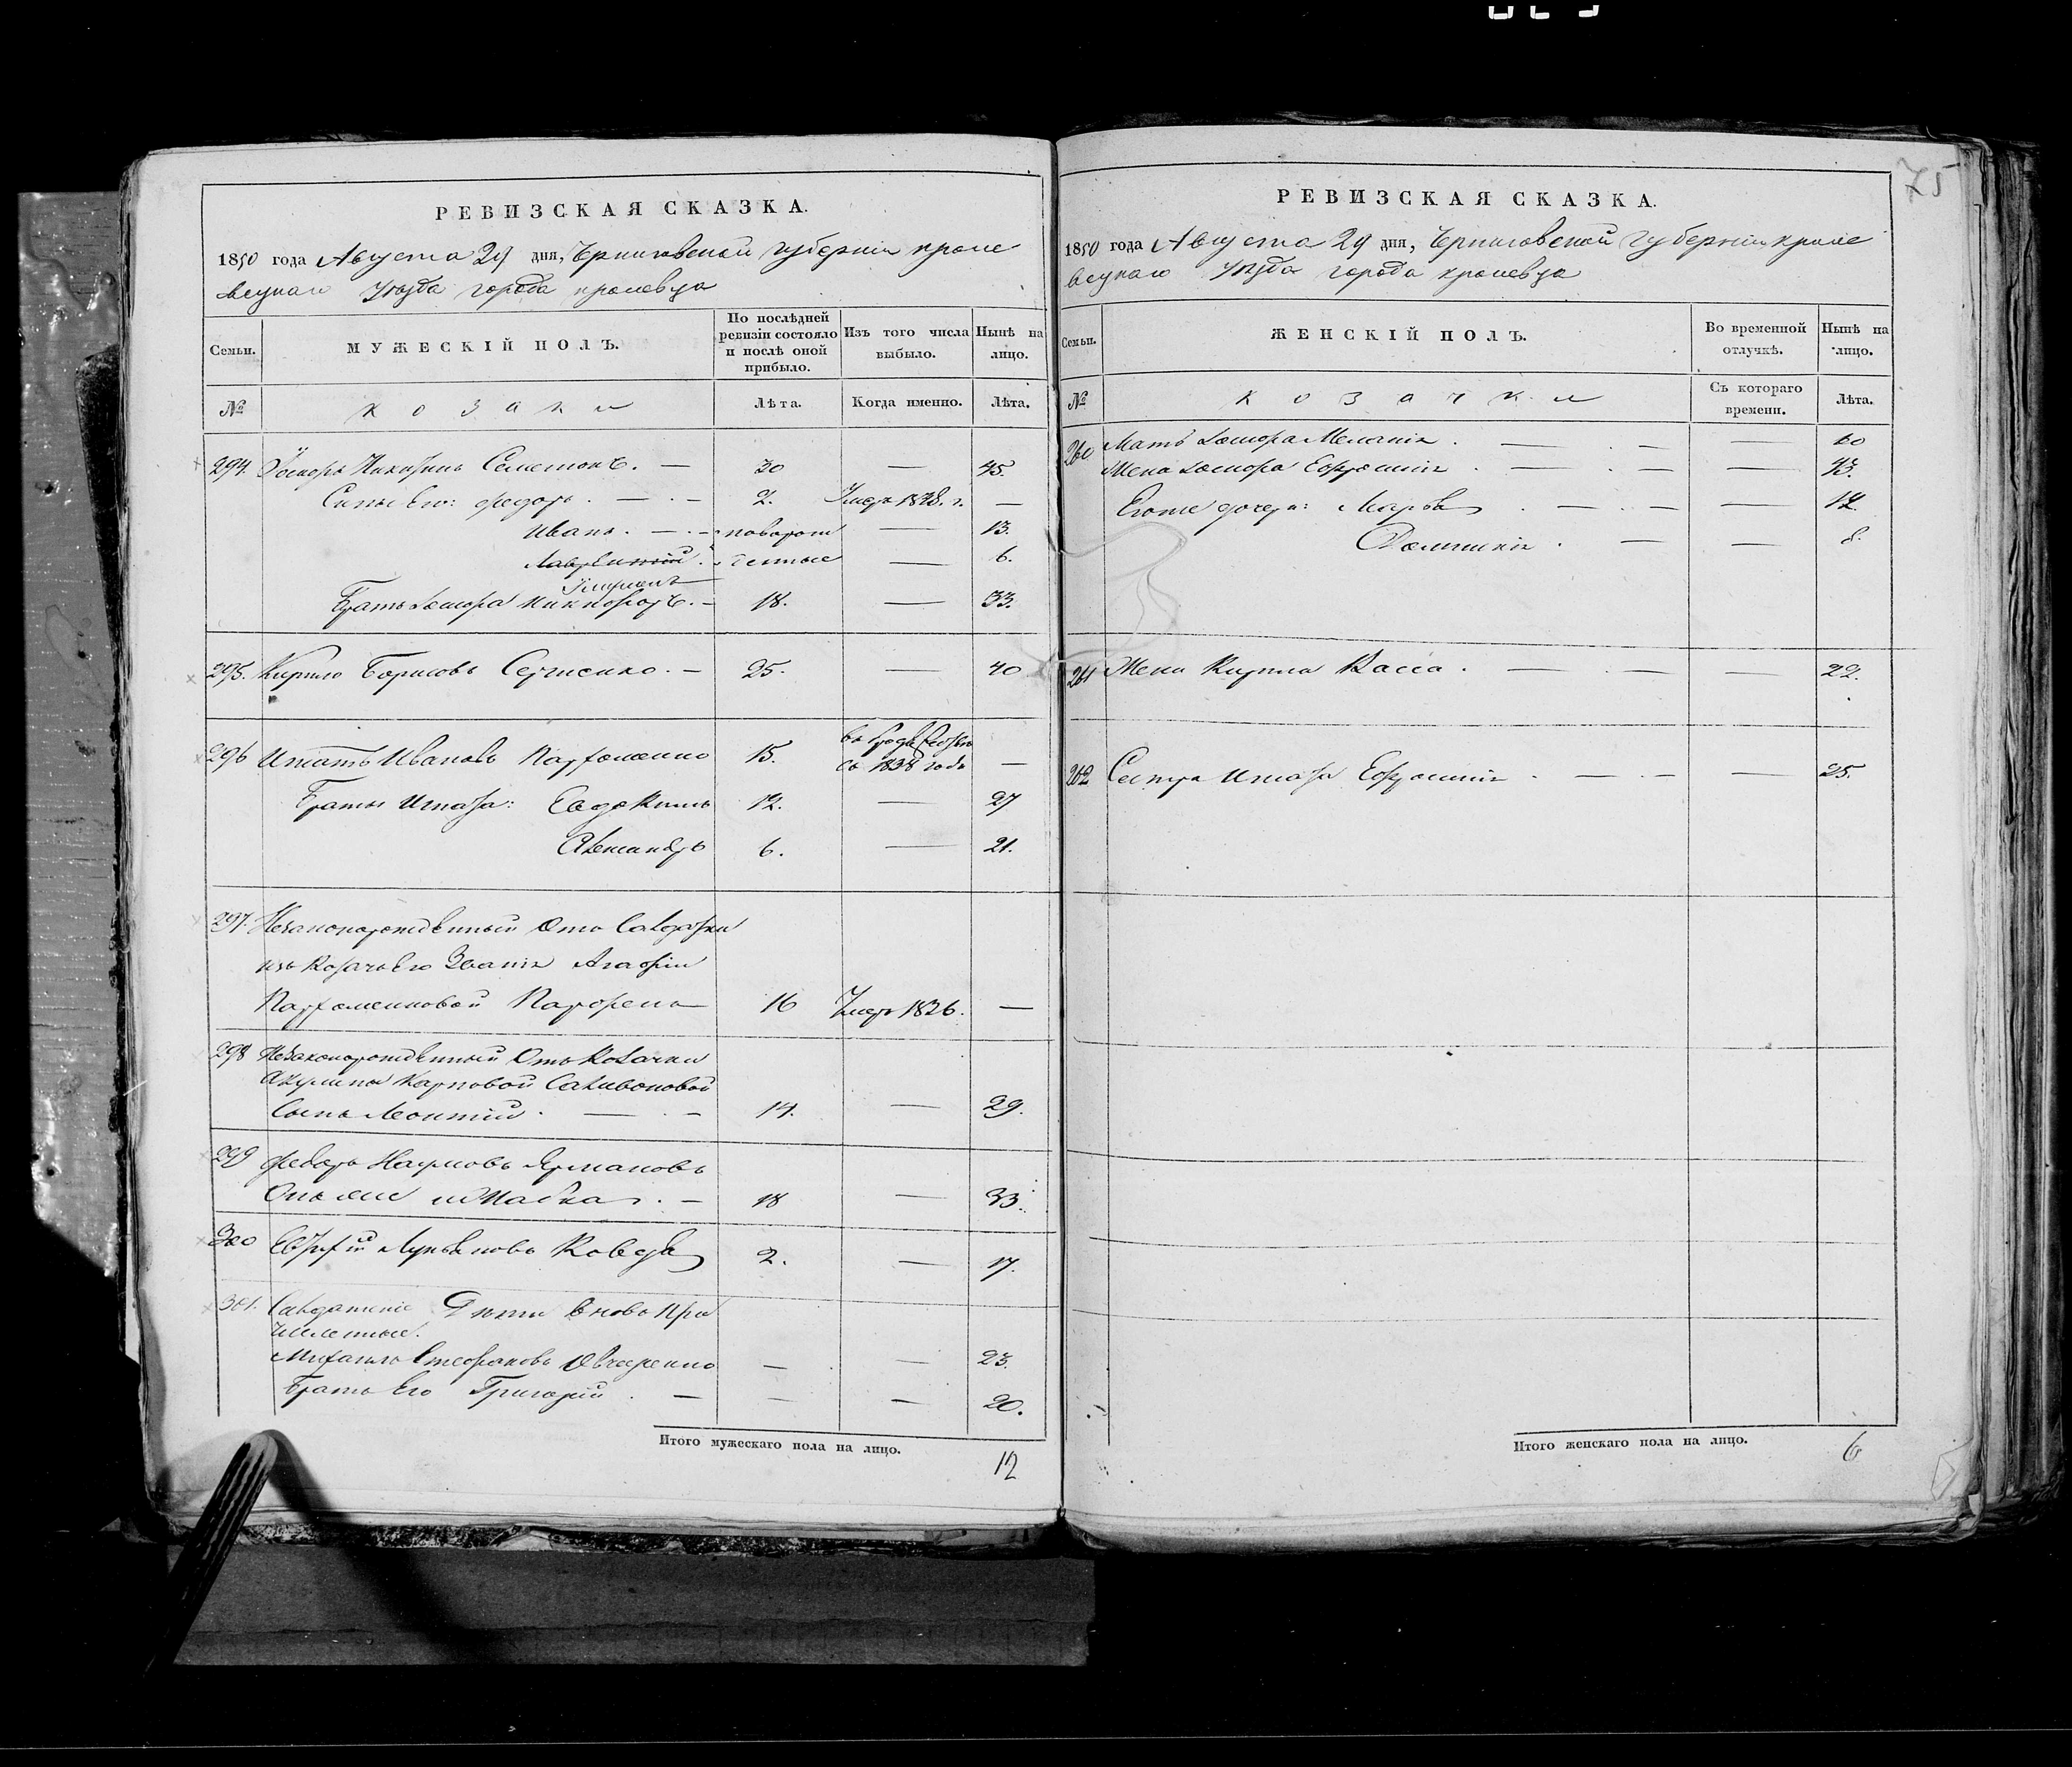 75
РЕВИЗСКАЯ СКАЗКА.
1850 года Августа 29 дня, Черниговской губернии кроле
вецкаго уѣзда города кролевца
Семьи.
МУЖЕСКІЙ ПОЛЪ.
По послѣдней ревизіи состояло и послѣ оной прибыло.
Изъ того числа выбыло.
Нынѣ на лицо.
№
козаки
Лѣта.
Когда именно.
Лѣта.
294. Никитинъ 30 — 45.
Сыны Его: Федоръ. — 2. Умеръ 1838. г. —
Иванъ. — новорож — 13.
Лаврентій денные — 6.
Братъ Никифоръ. — 18. — 33.
295. Кирило Борисовъ Сергіенко. — 25. — 40
296 Игнатъ Ивановъ Парфоменко 15. —
съ 1838 года
Братья Игната: Евдокимъ 12. — 27
Александръ 6. — 21.
297. Незаконорожденный Отъ Солдатки
изъ Козачьего Званія Агафіи
Парфоменковой Парфенъ 16 Умеръ 1836. —
298 Незаконорожденный Отъ Козачки
Акулины Карповой
Сынъ Леонтий. — 14. — 29.
299 Федоръ Наумовъ Ярмаковъ
Онъ же — 18 — 33.
300 Лукьяновъ 2. — 17.
301. Солдатскіе Дѣти вновь при
численные.
Михайло Стефановъ Овчаренко — — 23.
Братъ Его Григорій. — — — 20.
Итого мужескаго пола на лицо. 12
РЕВИЗСКАЯ СКАЗКА.
1850 года Августа 29 дня, Черниговской Губернии кроле
вецкаго уѣзда города кролевца
Семьи.
ЖЕНСКІЙ ПОЛЪ.
Во временной отлучкѣ.
Нынѣ на лицо.
№
козачки
Съ котораго времени.
Лѣта.
260 Мать Меланія. — — — 60
Жена Ефросинія. — — — 43.
Егоже дочери: Марья — — —
— — 8.
261 Жена Кирила Васса. — — — 22.
262 Сестра Игната Ефросинія — — — 25.
Итого женскаго пола на лицо. 6